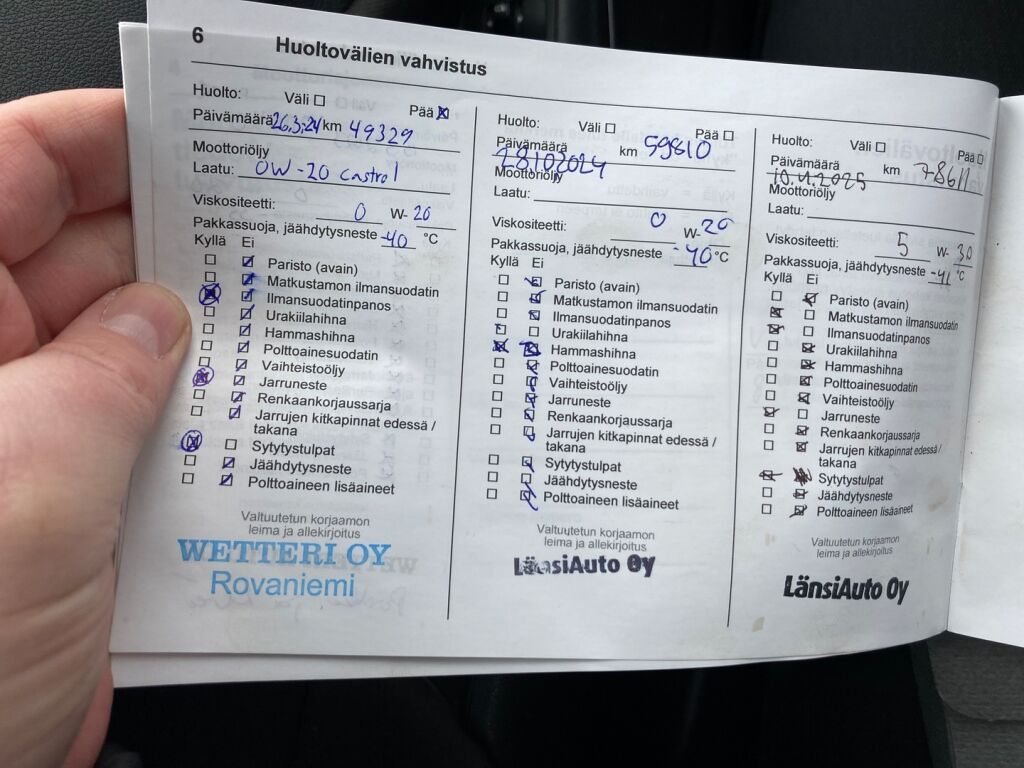 6
Huoltovälien vahvistus
Huolto: Väli Pää
Päivämäärä 26.3.24 km 49329
Moottoriöljy
Laatu: 0W-20 castrol
Viskositeetti: 0 W- 20
Pakkassuoja, jäähdytysneste -40 °C
Kyllä Ei
Paristo (avain)
Matkustamon ilmansuodatin
Ilmansuodatinpanos
Urakiilahihna
Hammashihna
Polttoainesuodatin
Vaihteistoöljy
Jarruneste
Renkaankorjaussarja
Jarrujen kitkapinnat edessä /
takana
Sytytystulpat
Jäähdytysneste
Polttoaineen lisäaineet
Valtuutetun korjaamon
leima ja allekirjoitus
WETTERI OY
Rovaniemi
Huolto: Väli Pää
Päivämäärä km 59810
28102024
Moottoriöljy
Laatu:
Viskositeetti: 0 W- 20
Pakkassuoja, jäähdytysneste -40 °C
Kyllä Ei
Paristo (avain)
Matkustamon ilmansuodatin
Ilmansuodatinpanos
Urakiilahihna
Hammashihna
Polttoainesuodatin
Vaihteistoöljy
Jarruneste
Renkaankorjaussarja
Jarrujen kitkapinnat edessä /
takana
Sytytystulpat
Jäähdytysneste
Polttoaineen lisäaineet
Valtuutetun korjaamon
leima ja allekirjoitus
LänsiAuto Oy
Huolto: Väli Pää
Päivämäärä km 78611
Moottoriöljy
Laatu:
Viskositeetti: 5 W- 30
Pakkassuoja, jäähdytysneste -41 °C
Kyllä Ei
Paristo (avain)
Matkustamon ilmansuodatin
Ilmansuodatinpanos
Urakiilahihna
Hammashihna
Polttoainesuodatin
Vaihteistoöljy
Jarruneste
Renkaankorjaussarja
Jarrujen kitkapinnat edessä /
takana
Sytytystulpat
Jäähdytysneste
Polttoaineen lisäaineet
Valtuutetun korjaamon
leima ja allekirjoitus
LänsiAuto Oy